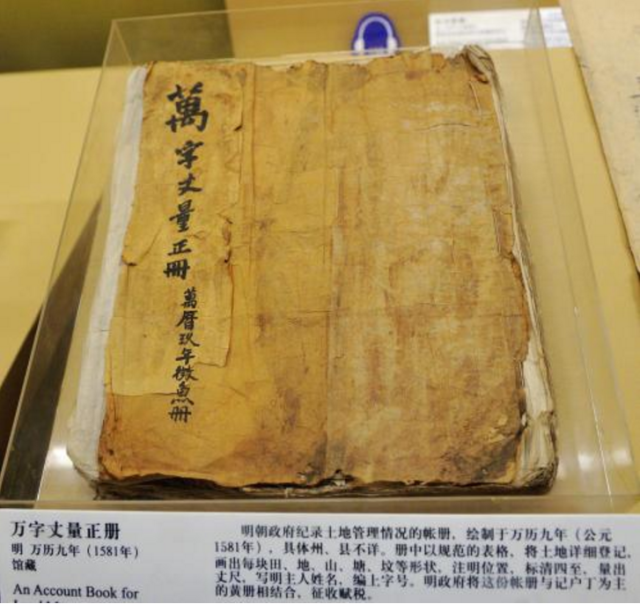 萬字丈量正冊
萬曆玖年微魚冊
万字丈量正册
明 万历九年（1581年）
馆藏
An Account Book for
明朝政府纪录土地管理情况的帐册，绘制于万历九年（公元
1581年），具体州、县不详。册中以规范的表格，将土地详细登记，
画出每块田、地、山、塘、坟等形状，注明位置，标清四至，量出
丈尺，写明主人姓名，编上字号。明政府将这份帐册与记户丁为主
的黄册相结合，征收赋税。